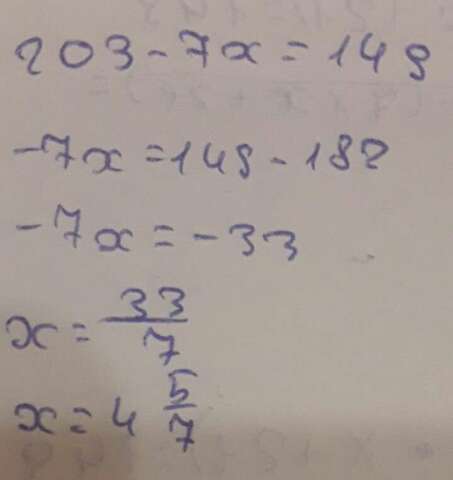 203 - 7x = 149
-7x = 149 - 182
-7x = -33
x = 33/7
x = 4 5/7